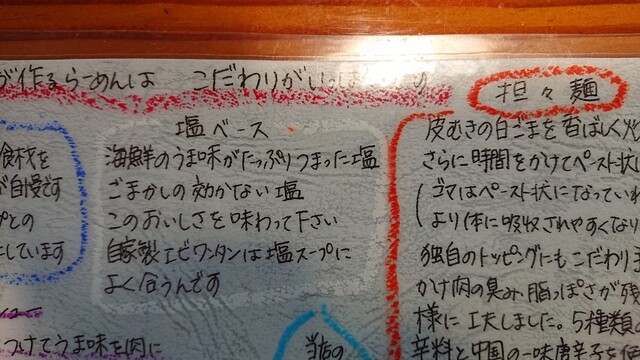 が作るらーめんは こだわりがいっぱ の
塩ベース
海鮮のうま味がたっぷりつまった塩
ごまかしの効かない塩
このおいしさを味わって下さい
自家製エビワンタンは塩スープに
よく合うんです
担々麺
皮むきの白ごまを香ばしく
さらに時間をかけてペースト状に
(ゴマはペースト状になっていれ
より体に吸収されやすくなり
独自のトッピングにもこだわり
かけ肉の臭み、脂っぽさが残
様に工夫しました。5種類
辛料と中国の一味唐辛子を
食材を
が自慢です
プとの
しています
ュー
つけてうま味を肉に
当店の